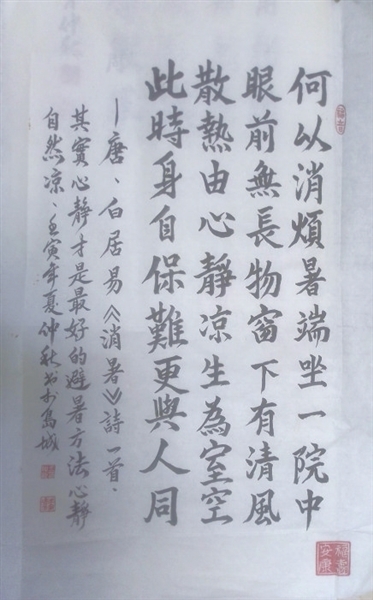 何以消煩暑端坐一院中
眼前無長物窗下有清風
散熱由心靜凉生為室空
此時身自保難更與人同
一唐、白居易《消暑》詩一首、
其實心靜才是最好的避暑方法心靜
自然凉、壬寅年夏仲秋书于岛城
福壽安康